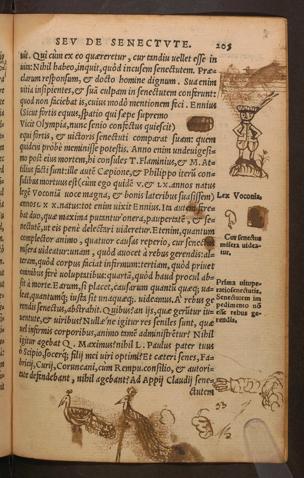 SEV DE SENECTVTE. 205
uit. Qui cùm ex eo quæreretur, cur tandiu uellet esse in
uita: Nihil habeo, inquit, quòd incusem senectutem. Præ
clarum responsum, & docto homine dignum. Sua enim
uitia insipientes, & suã culpam in senectutem conferunt:
quod non faciebat is, cuius modò mentionem feci. Ennius
(Sicut fortis equus, spatio qui sæpe supremo
Vicit Olympia, nunc senio confectus quiescit)
equi fortis, & uictoris senectuti comparat suam: quem
quidem probè meminisse potestis. Anno enim undeuigesi-
mo post eius mortem, hi consules T. Flaminius, & M. At-
tilius facti sunt: ille autẽ Cæpione, & Philippo iterũ con-
sulibus mortuus est (cum ego quidẽ v. & LX. annos natus
legẽ Voconiã uoce magna, & bonis lateribus suasissem)
annos LXX. natus: tot enim uixit Ennius. Ita autem fere-
bat duo, quæ maxima putantur onera, paupertatẽ, & se-
nectutẽ, ut eis penè delectari uideretur. Etenim, quantum
complector animo, quatuor causas reperio, cur senectus
misera uideatur: unam, quòd auocet à rebus gerendis: al-
teram, quòd corpus faciat infirmum: tertiam, quòd priuet
omnibus ferè uoluptatibus: quartã, quòd haud procul ab-
sit à morte. Earum, si placet, causarum quanta quæq; ua-
leat, quantumq́; iusta sit unaquæq; uideamus. A' rebus ge
rendis senectus, abstrahit. Quibus? an ijs, quæ gerũtur iu-
uentute, & uiribus? Nullæ'ne igitur res seniles sunt, quæ
uel infirmis corporibus, animo tamẽ administrẽtur? Nihil
igitur agebat Q. Maximus? nihil L. Paulus pater tuus
ò Scipio, socerq́; filij mei uiri optimi? Et cæteri senes, Fa-
bricij, Curij, Coruncani, cum Rempu. consilio, & autori-
tate defendebant, nihil agebant? Ad Appij Claudij sene-
ctutem
Lex Voconia.
Cur senectus
misera uidea-
tur.
Prima uitupe-
ratio senectutis.
Senectutem im
pedimento nõ
esse rebus ge-
rendis.